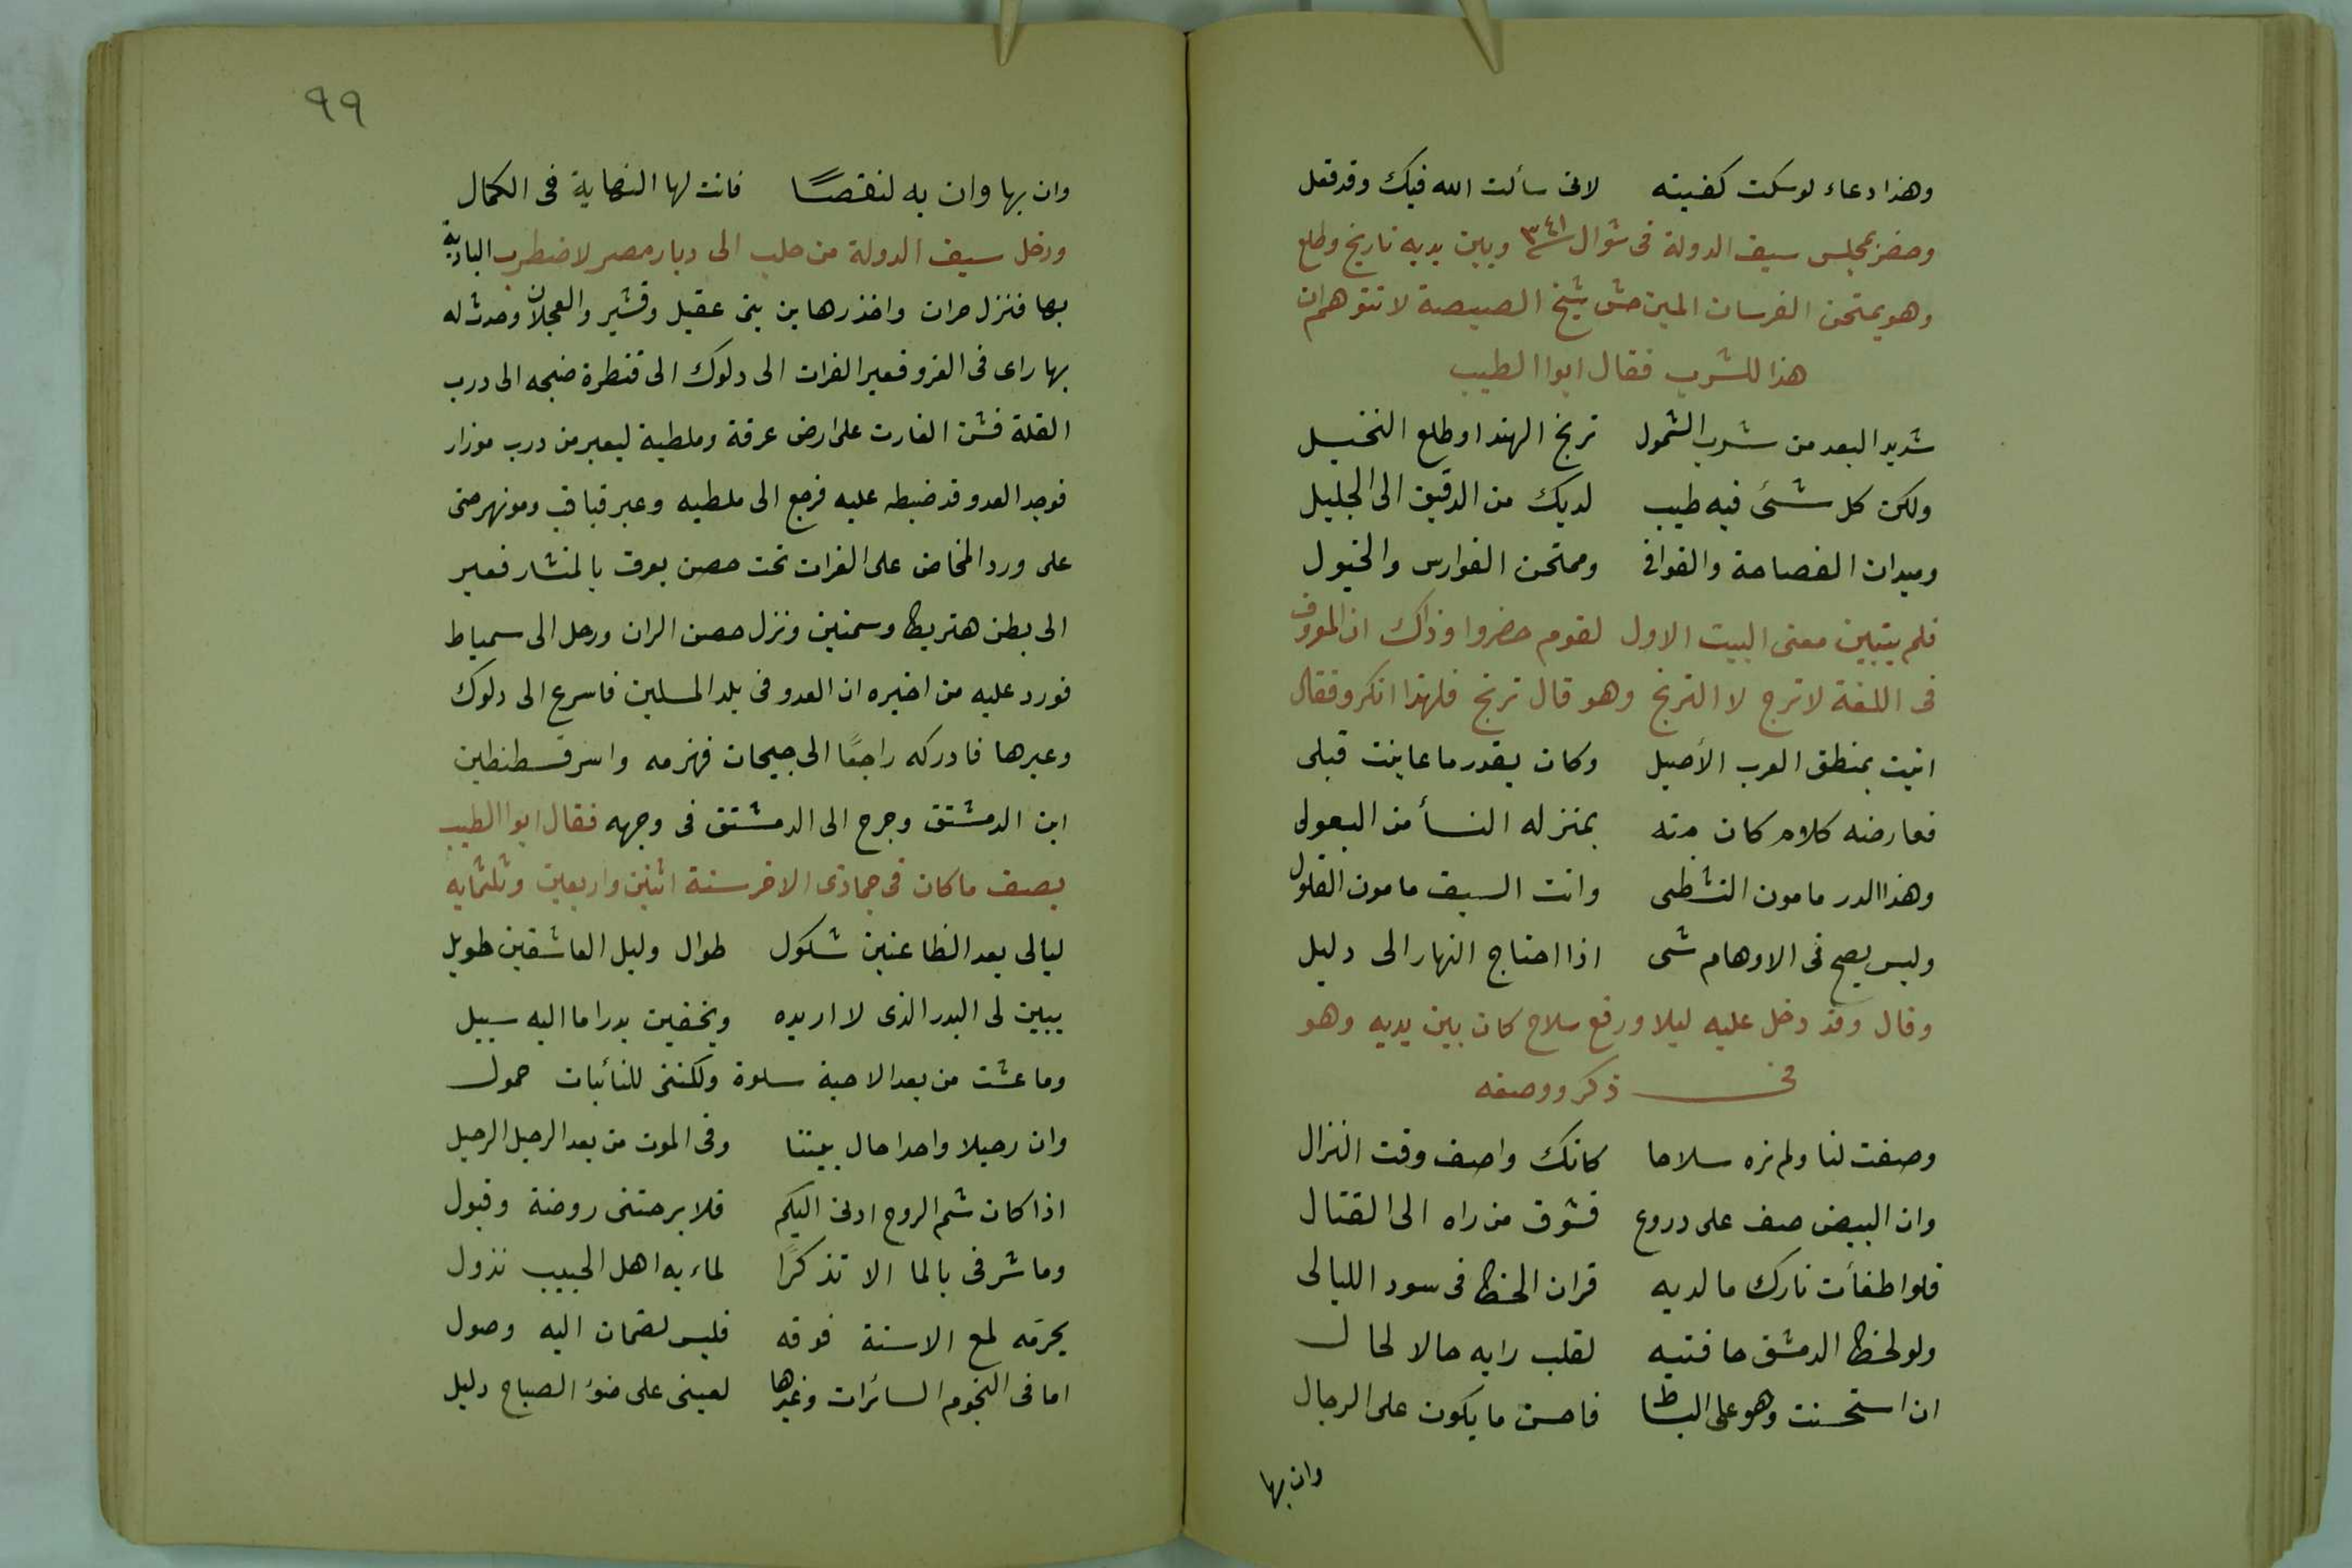 وهذا دعاء لو سكت كفيته لانى سألت الله فيك وقد فعل
وحضر بمجلس سيف الدولة فى شوال ٣٤١ وبين يديه نارنج وطلع
وهو يمتحن الفرسان شيخ المصيصة لا تتوهم ان
هذا للشرب فقال ابوا الطيب
شديد البعد من شرب الشمول ترنج الهند او طلع النخيل
ولكن كل شئ فيه طيب لديك من الدقيق الى الجليل
وميدان الفصاحة والقوافى وممتحن الفوارس والخيول
فلم يتبين معنى البيت الاول لقوم حضروا وذاك ان المعروف
فى اللغة لاترج لا الترنج وهو قال ترنج فلهذا انكر وفقال
اتيت بمنطق العرب الأصيل وكان بقدر ما عاينت قبلى
فعارضه كلام كان منه بمنزله النسأ من البعول
وهذا الدر مامون التشظى وانت السيف مامون الفلول
وليس يصح فى الاوهام شى اذا احتاج النهار الى دليل
وقال وقد دخل عليه ليلا ورفع سلاح كان بين يديه وهو
فى ذكر ووصفه
وصفت لنا ولم نره سلاحا كانك واصف وقت النزال
وان البيض صف على دروع فشوق من راه الى القتال
فلو اطفأت نارك مالديه قران الخط فى سود الليالى
ولو لحظ الدمشق حافتيه لقلب رايه حالا لحال
ان استحسنت وهو على البساط فاحسن ما يكون على الرجال
وان بها
٩٩
وان بها وان به لنقصًا فانت لها النهاية فى الكمال
ورحل سيف الدولة من حلب الى ديار مصر لاضطرب البادية
بها فنزل حران واخذ رهاين بنى عقيل وقشير والعجلان وحدث له
بها راى فى الغزو فعبر الفرات الى دلوك الى قنطرة صنجه الى درب
القلة فشن الغارت على ارض عرقة وملطية ليعبر من درب موزار
فوجد العدو قد ضبطه عليه فرجع الى ملطيه وعبر قباقب وهو نهر حتى
على ورد المخاض على الفرات تحت حصن يعرف بالمنشار فعبر
الى بطن هنريط وسمنين ونزل حصن الران ورحل الى سمياط
فورد عليه من اخبره ان العدو فى بلد المسلمين فاسرع الى دلوك
وعبرها فادركه راجعًا الى جيحان فهزمه واسر قسطنطين
ابن الدمشتق وجرح الى الدمشتق فى وجهه فقال ابوا الطيب
يصف ما كان فى جمادى الاخر سنة اثنين واربعين وثلثمايه
ليالى بعد الظاعنين شكول طوال وليل العاشقين طويل
يبين لى البدر الذى لا اريده ويخفين بدرا ما اليه سبيل
وما عشت من بعد الاحبة سلوة ولكننى للنائبات حمول
وان رحيلا واحدا حال بيننا وفى الموت من بعد الرحيل الرحيل
اذا كان شم الروح ادنى اليكم فلا برحتنى روضة وقبول
وما شرفى بالما الا تذكرًا لماء به اهل الحبيب نزول
يحرمه لمع الاسنة فوقه فليس لضمان اليه وصول
اما فى النجوم السائرات وغيرها لعينى على ضوء الصباح دليل